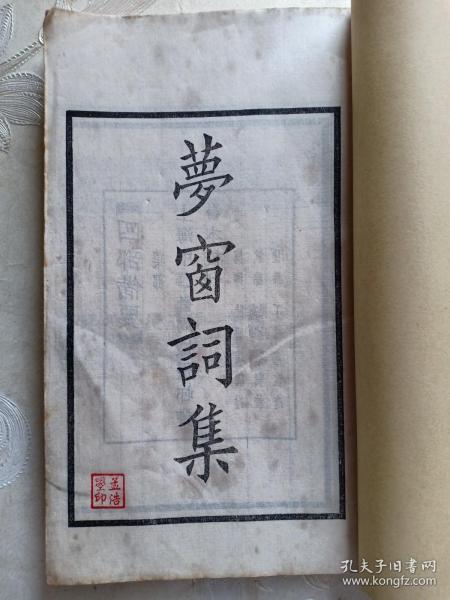 夢窗詞集
孔夫子旧书网
www.kongfz.com